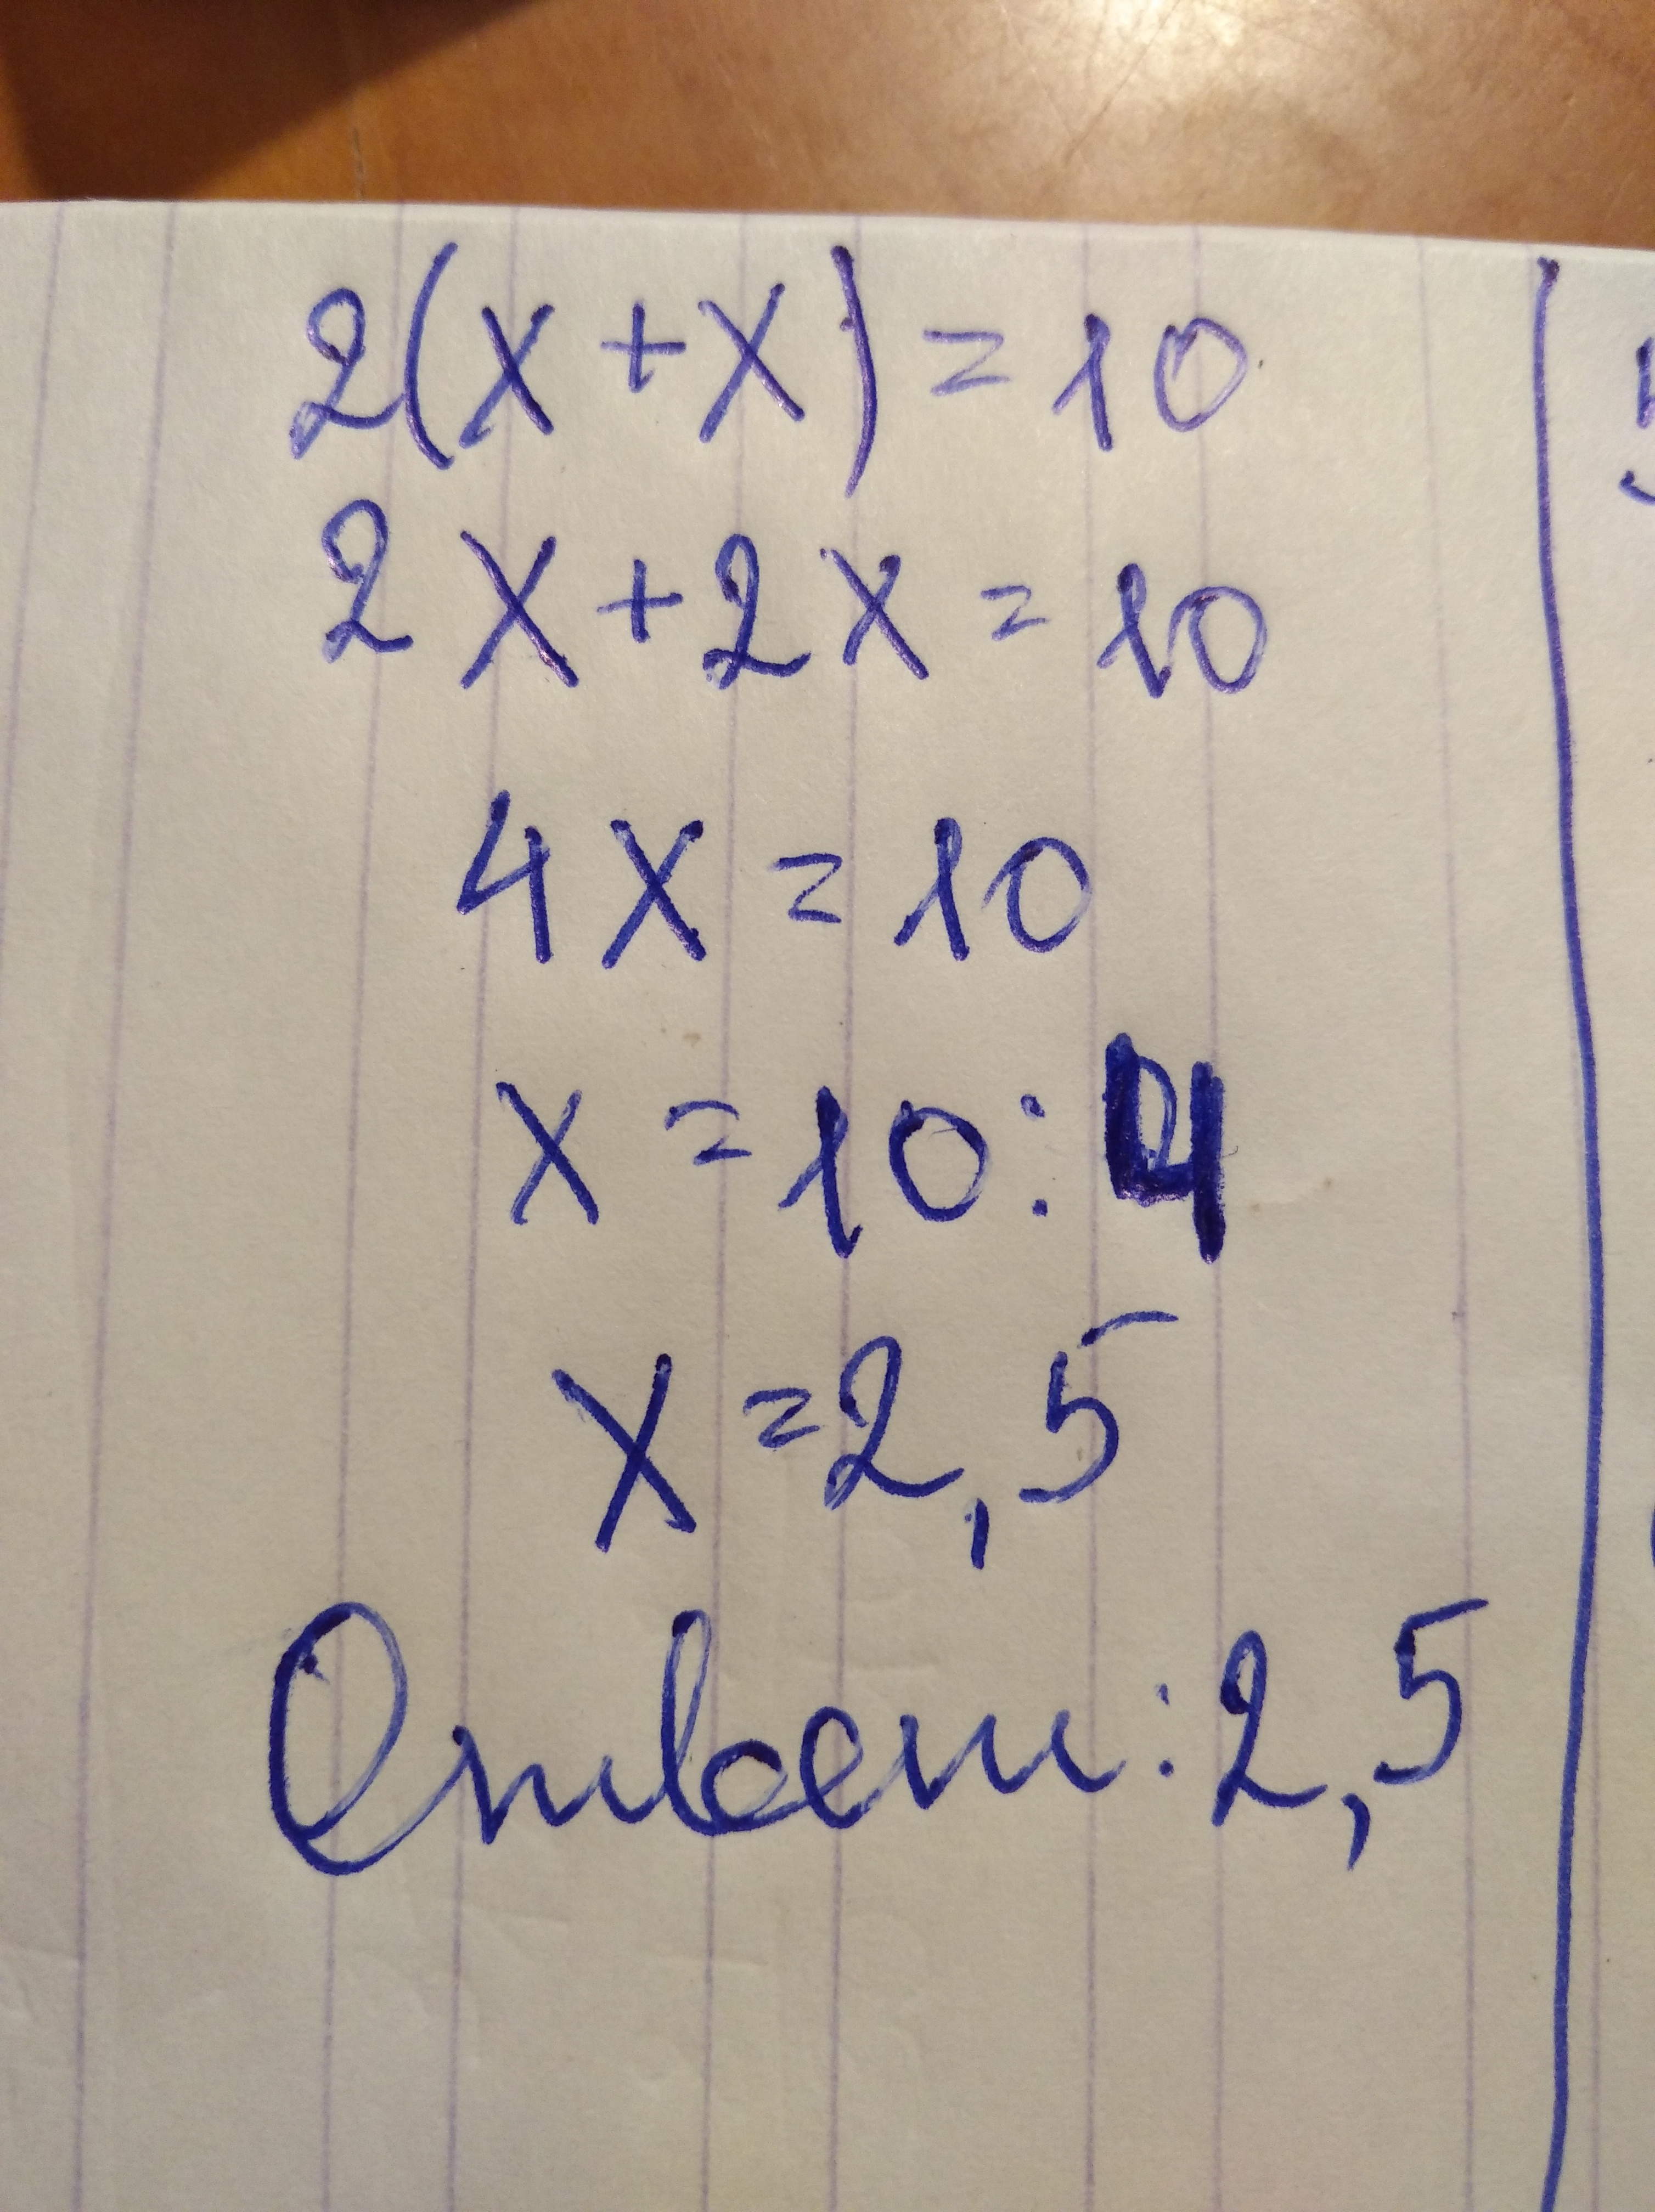 2(x+x)=10
2x+2x=10
4x=10
x=10:4
x=2,5
Ответ:2,5